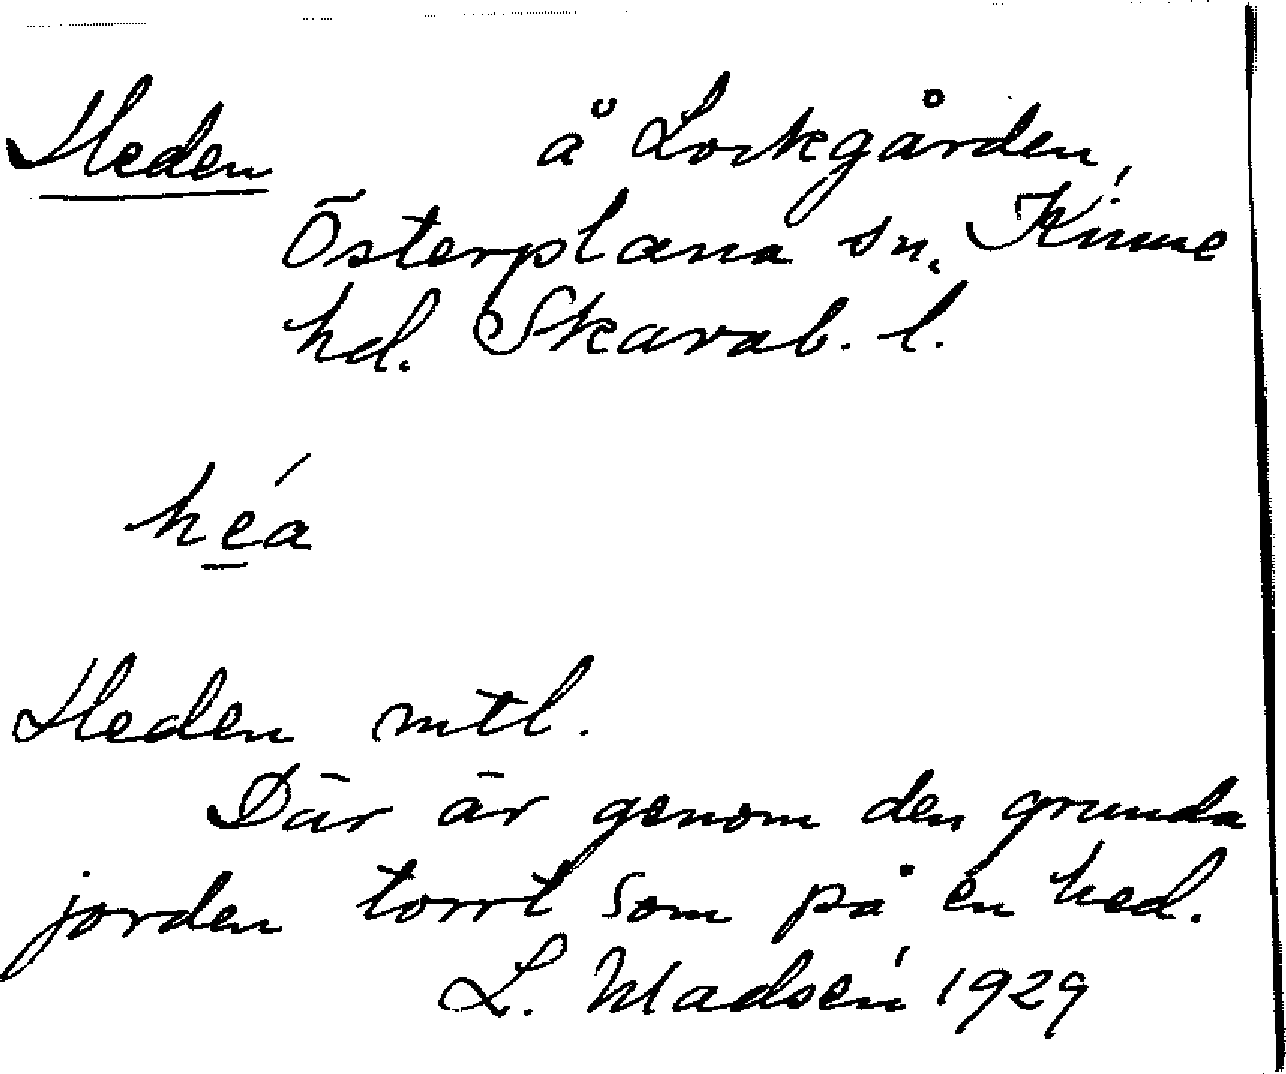 Heden å Lockgården,
Österplana sn. Kinne
hd. Skarab. l.
hea
Heden mtl.
Där är genom den grunda
jorden torrt som på en hed.
L. Madsén 1929